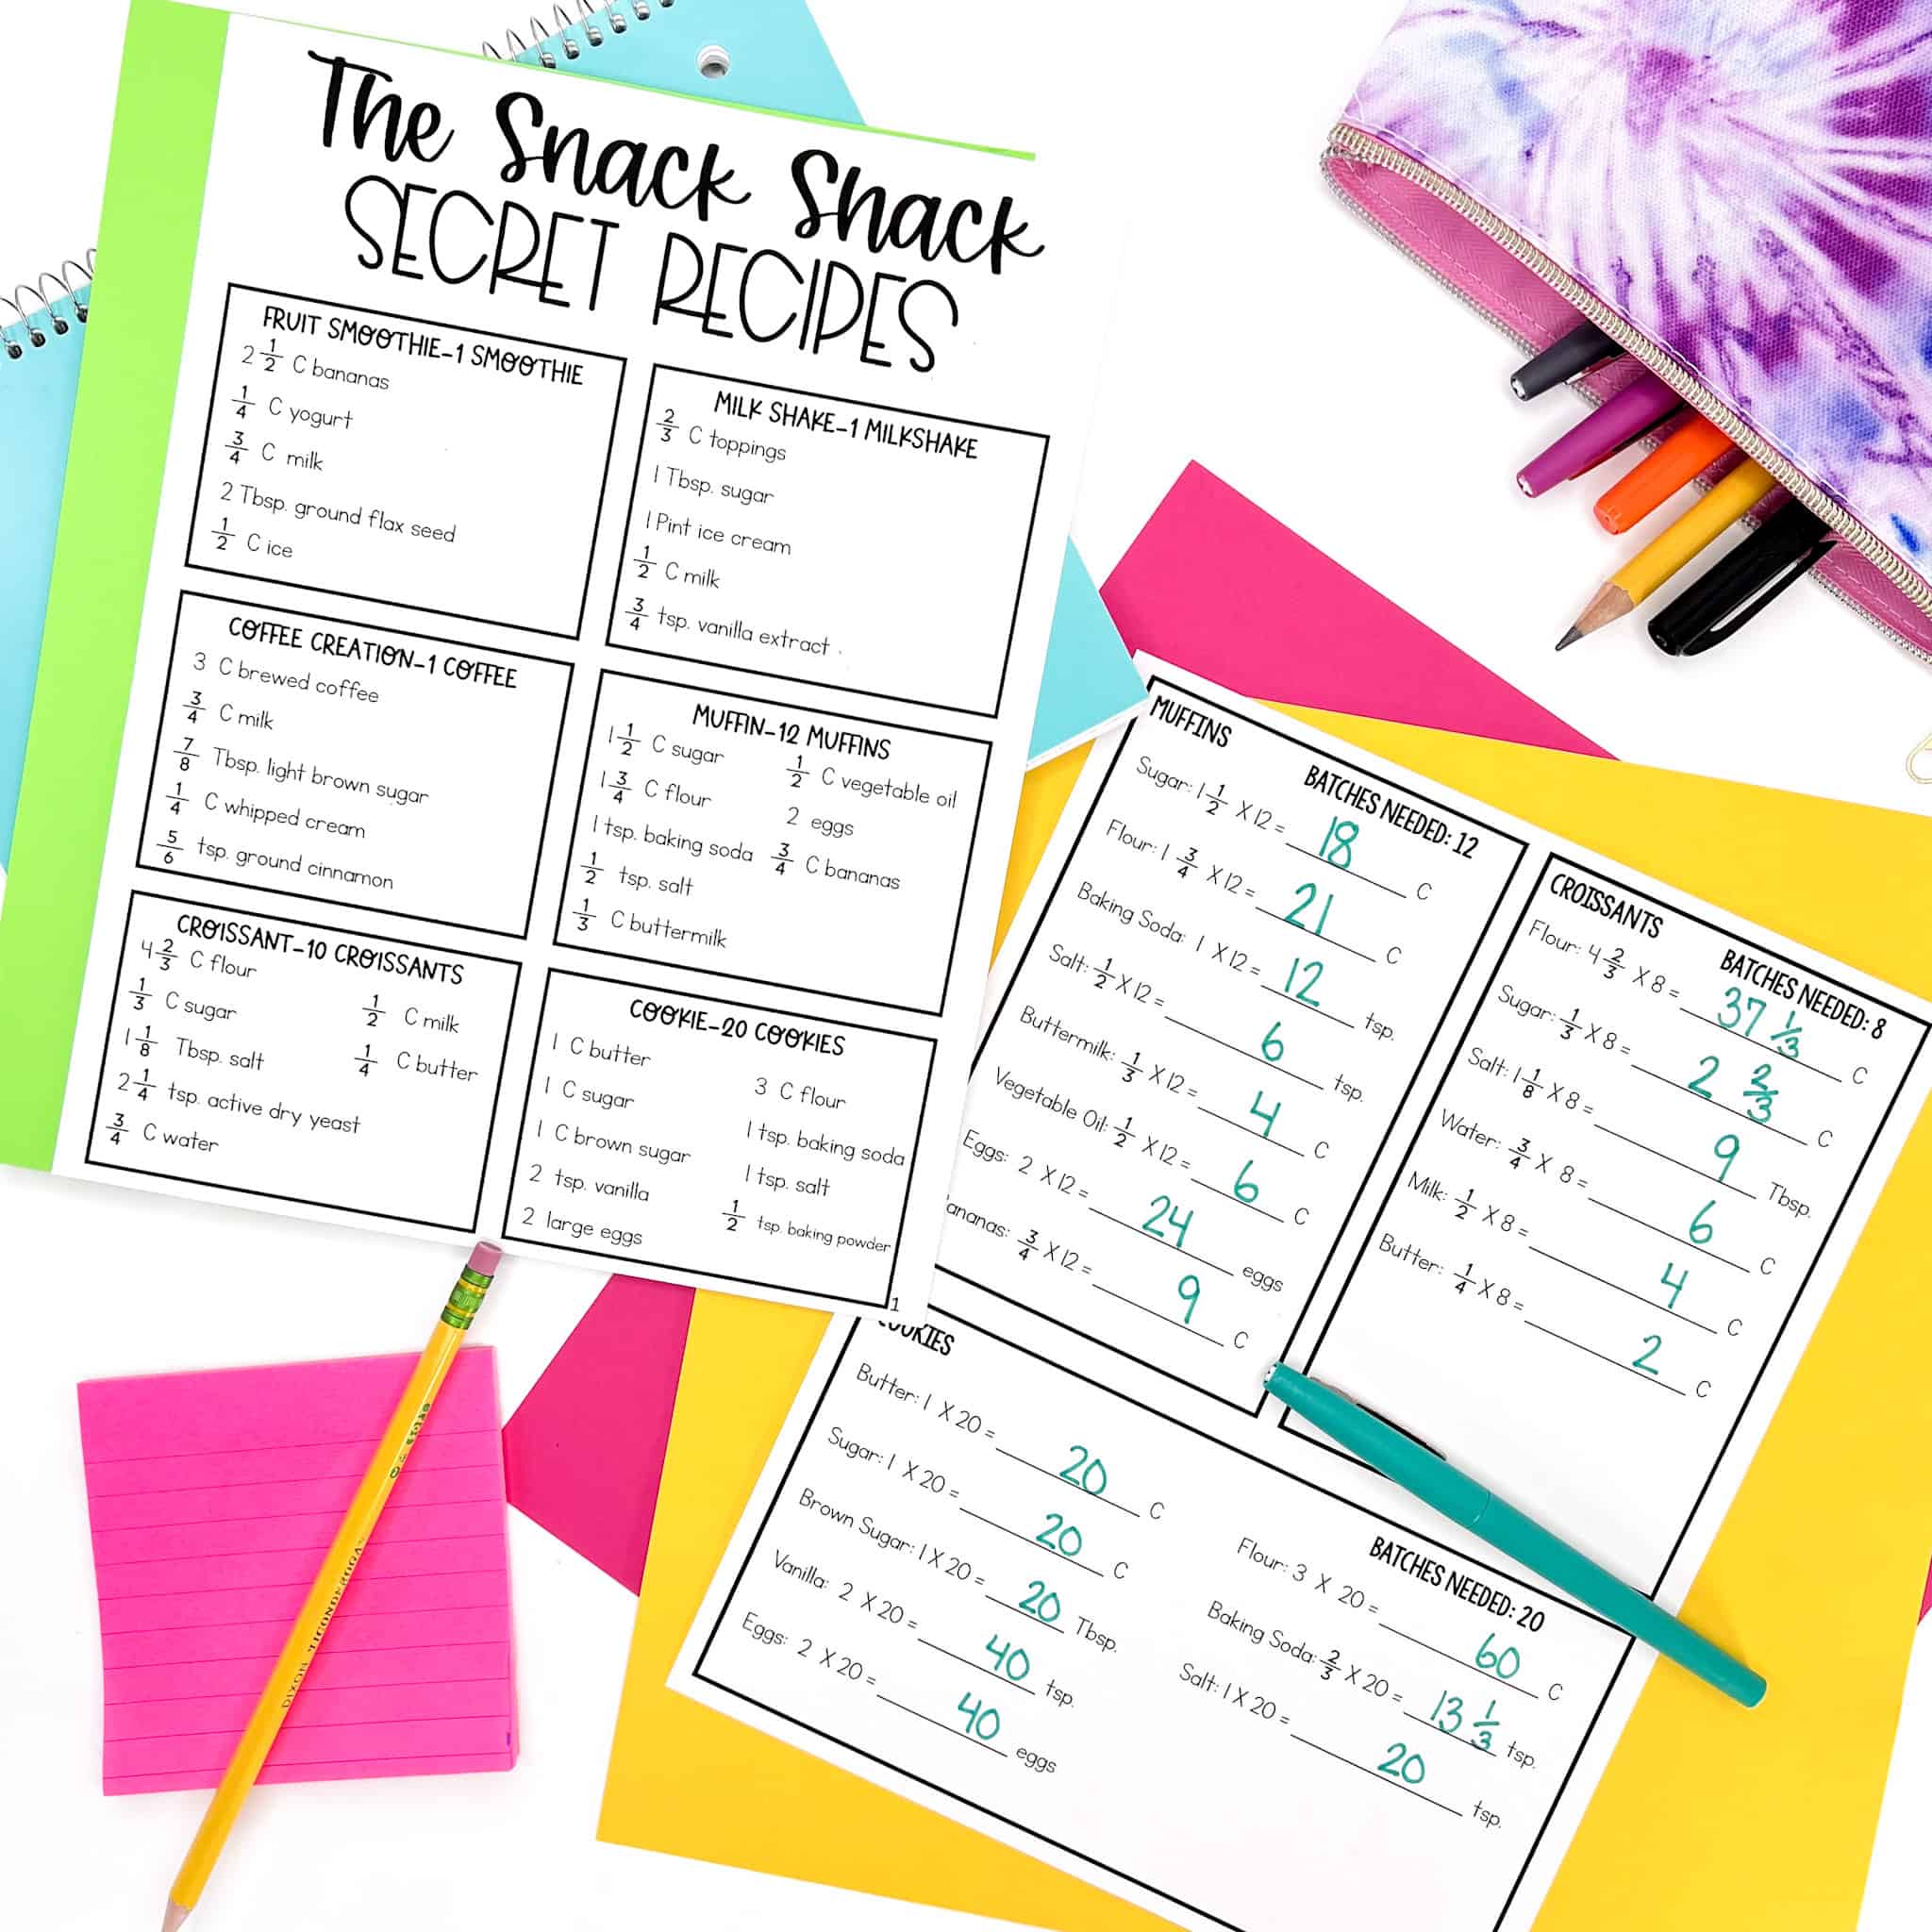 The Snack Shack
SECRET RECIPES
FRUIT SMOOTHIE-1 SMOOTHIE
2 1/2 C bananas
1/4 C yogurt
3/4 C milk
2 Tbsp. ground flax seed
1/2 C ice
MILK SHAKE-1 MILKSHAKE
2/3 C toppings
1 Tbsp. sugar
1 Pint ice cream
1/2 C milk
3/4 tsp. vanilla extract
COFFEE CREATION-1 COFFEE
3 C brewed coffee
3/4 C milk
7/8 Tbsp. light brown sugar
1/4 C whipped cream
5/6 tsp. ground cinnamon
MUFFIN-12 MUFFINS
1 1/2 C sugar
1 3/4 C flour
1 tsp. baking soda
1/2 tsp. salt
1/3 C buttermilk
1/2 C vegetable oil
2 eggs
3/4 C bananas
CROISSANT-10 CROISSANTS
4 2/3 C flour
1/3 C sugar
1 1/8 Tbsp. salt
2 1/4 tsp. active dry yeast
3/4 C water
1/2 C milk
1/4 C butter
COOKIE-20 COOKIES
1 C butter
1 C sugar
1 C brown sugar
2 tsp. vanilla
2 large eggs
3 C flour
1 tsp. baking soda
1 tsp. salt
1/2 tsp. baking powder
1
MUFFINS
BATCHES NEEDED: 12
Sugar: 1 1/2 X 12 = 18 C
Flour: 1 3/4 X 12 = 21 C
Baking Soda: 1 X 12 = 12 tsp.
Salt: 1/2 X 12 = 6 tsp.
Buttermilk: 1/3 X 12 = 4 C
Vegetable Oil: 1/2 X 12 = 6 C
Eggs: 2 X 12 = 24 eggs
ananas: 3/4 X 12 = 9 C
CROISSANTS
BATCHES NEEDED: 8
Flour: 4 2/3 X 8 = 37 1/3 C
Sugar: 1/3 X 8 = 2 2/3 C
Salt: 1 1/8 X 8 = 9 Tbsp.
Water: 3/4 X 8 = 6 C
Milk: 1/2 X 8 = 4 C
Butter: 1/4 X 8 = 2 C
COOKIES
BATCHES NEEDED: 20
Butter: 1 X 20 = 20 C
Sugar: 1 X 20 = 20 C
Brown Sugar: 1 X 20 = 20 Tbsp.
Vanilla: 2 X 20 = 40 tsp.
Eggs: 2 X 20 = 40 eggs
Flour: 3 X 20 = 60 C
Baking Soda: 2/3 X 20 = 13 1/3 tsp.
Salt: 1 X 20 = 20 tsp.
DIXON TICONDEROGA